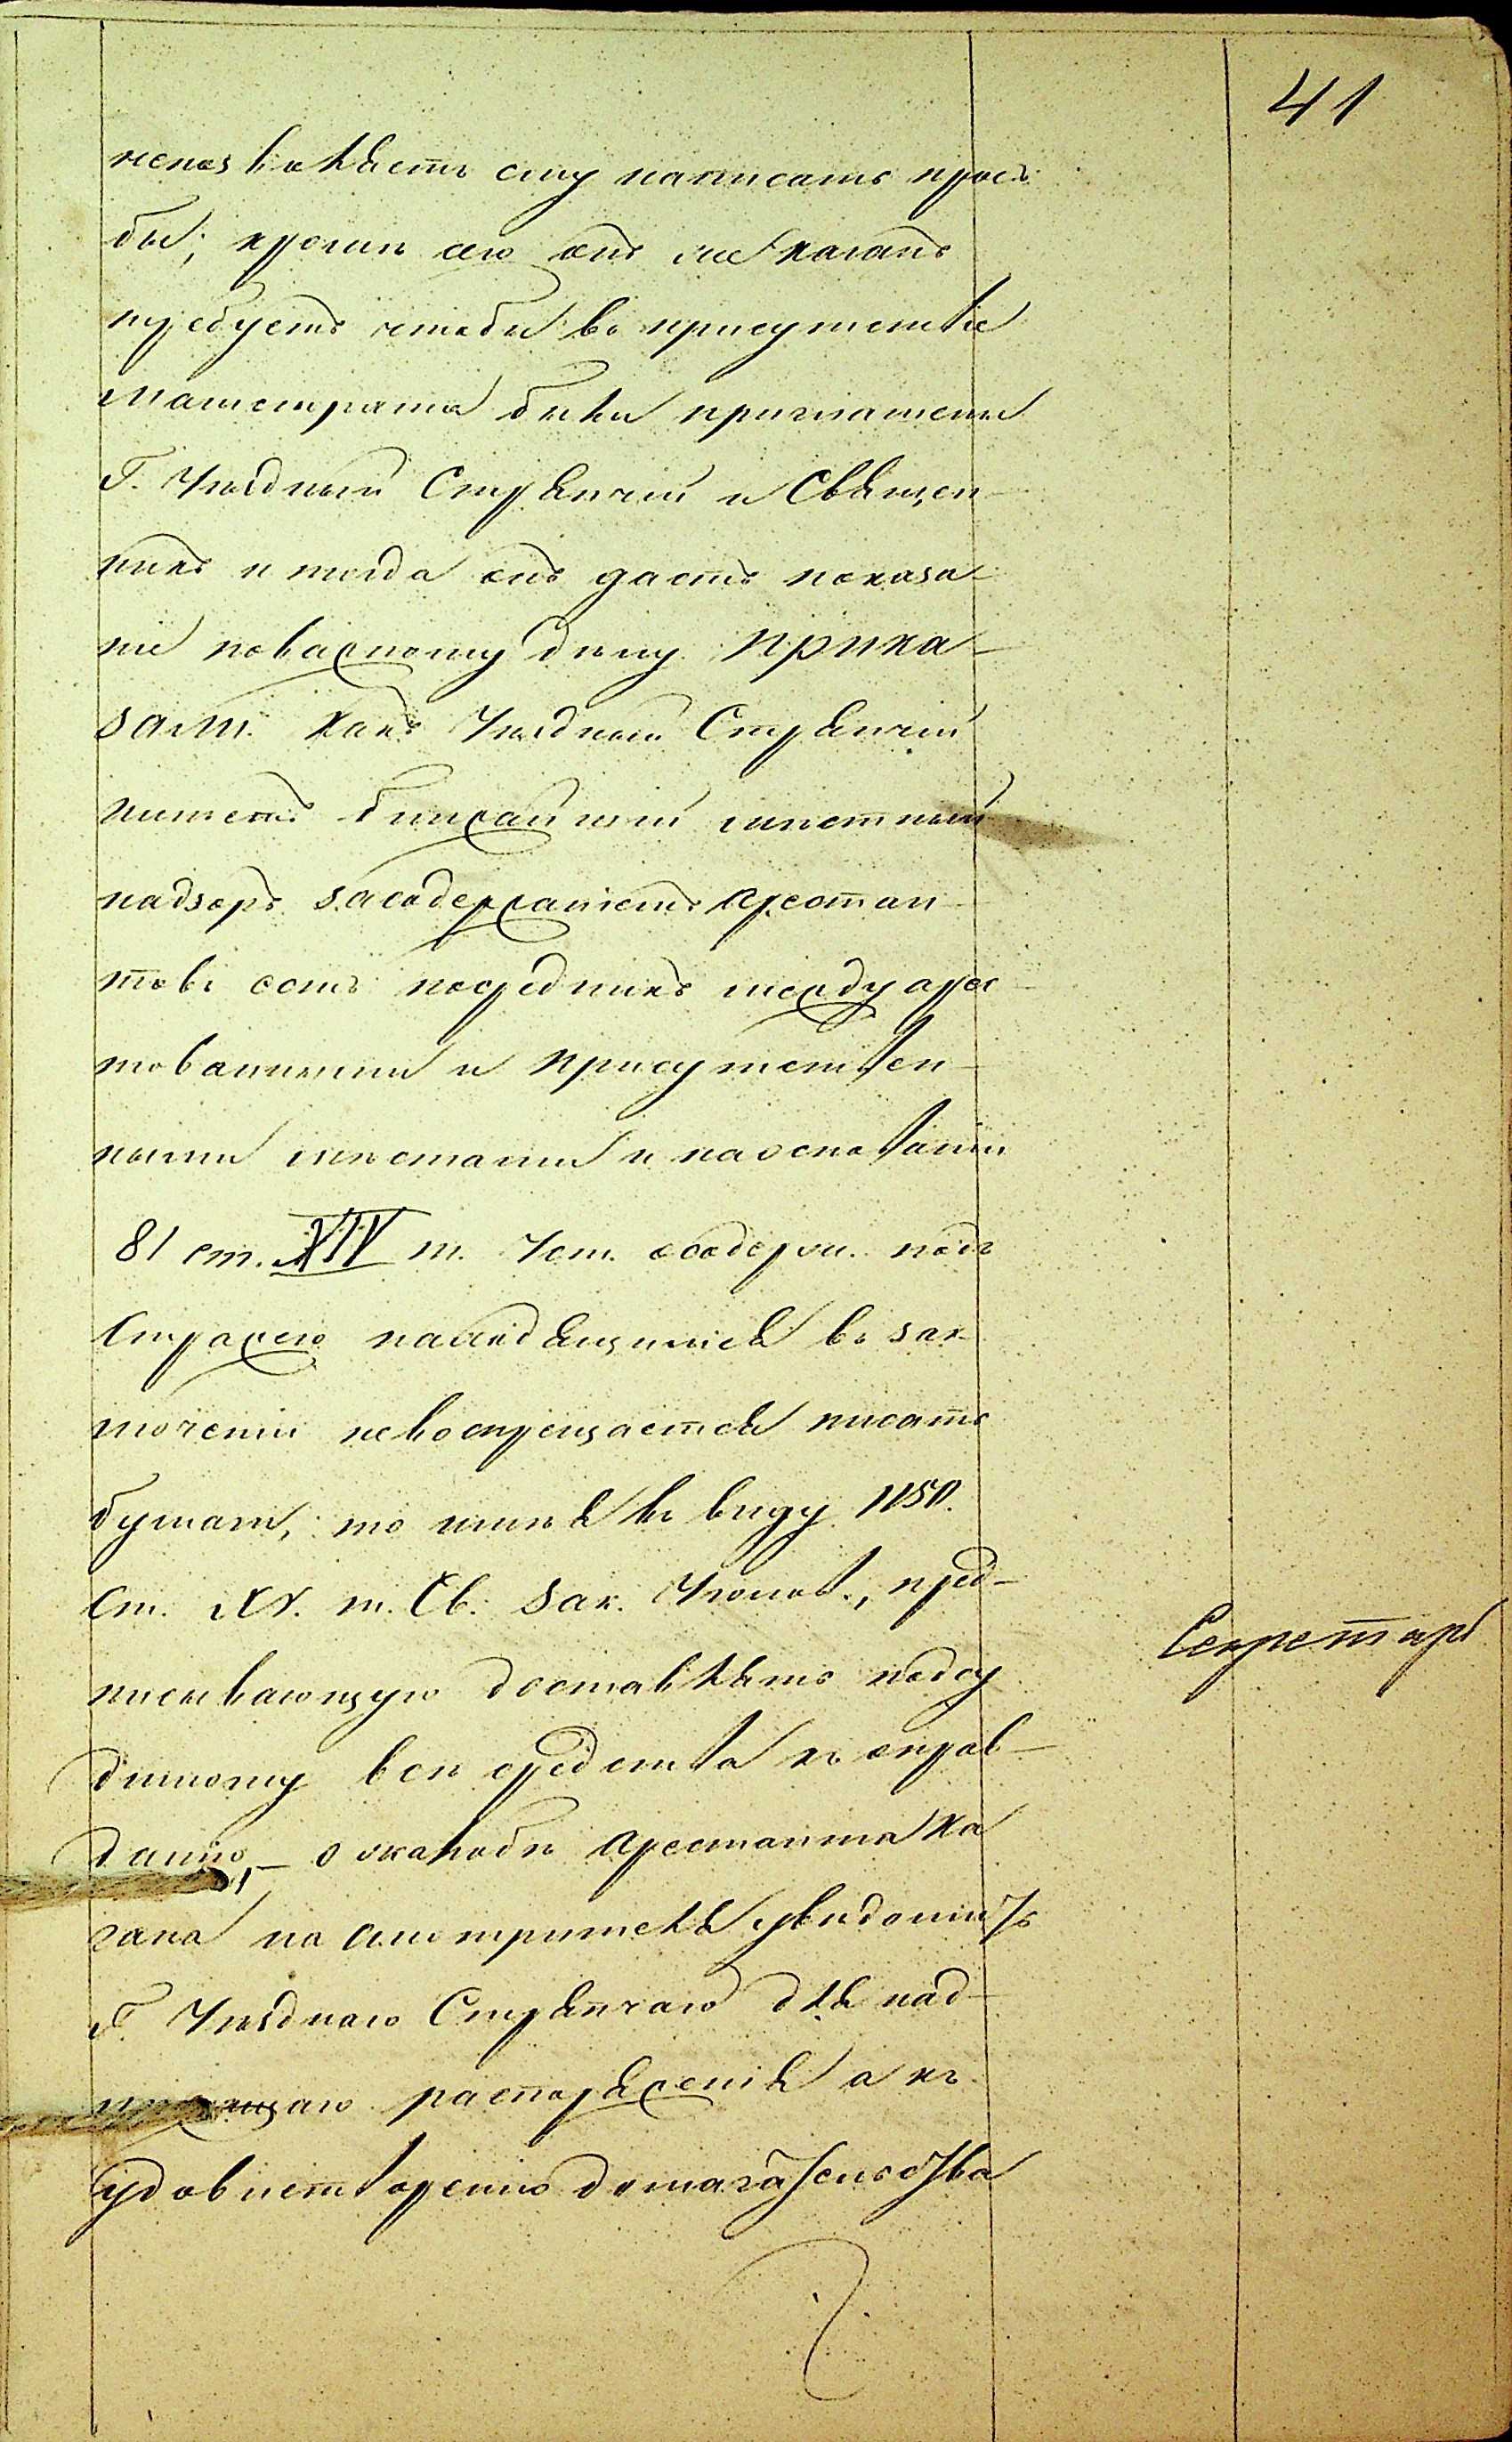 41
непозволяетъ ему написать прось
бы; кроме сего онъ же Каганъ
требуетъ чтобы въ присутствіе
Магистрата были приглашены
Г. Уѣздный Стряпчий и Священ-
никъ и тогда онъ дастъ показа-
ніе поважному дѣлу. Прика-
зали. Какъ Уѣздный Стряпчій
имѣетъ ближайшій мѣстный
надзоръ засодержаніемъ арестан-
товъ есть посредникъ между арес-
тованными и присутствен-
ными мѣстами и наоснованіи
81 ст. XIV т. Уст. осодерж. подъ
Стражею находящимся въ зак
люченіи невоспрещается писать
бумаги, то имѣя въ виду 1150.
Ст. XV. т. Св. Зак. Уголов., пред-
писывающую доставлять подсу
димому все средства къ оправ-
данію, – о жалобѣ арестанта Ка
гана на смотрителя уведомить
Г. Уѣзднаго Стряпчаго для над-
лежащаго распоряженія а къ
удовлетворенію домагательства
Секретарь